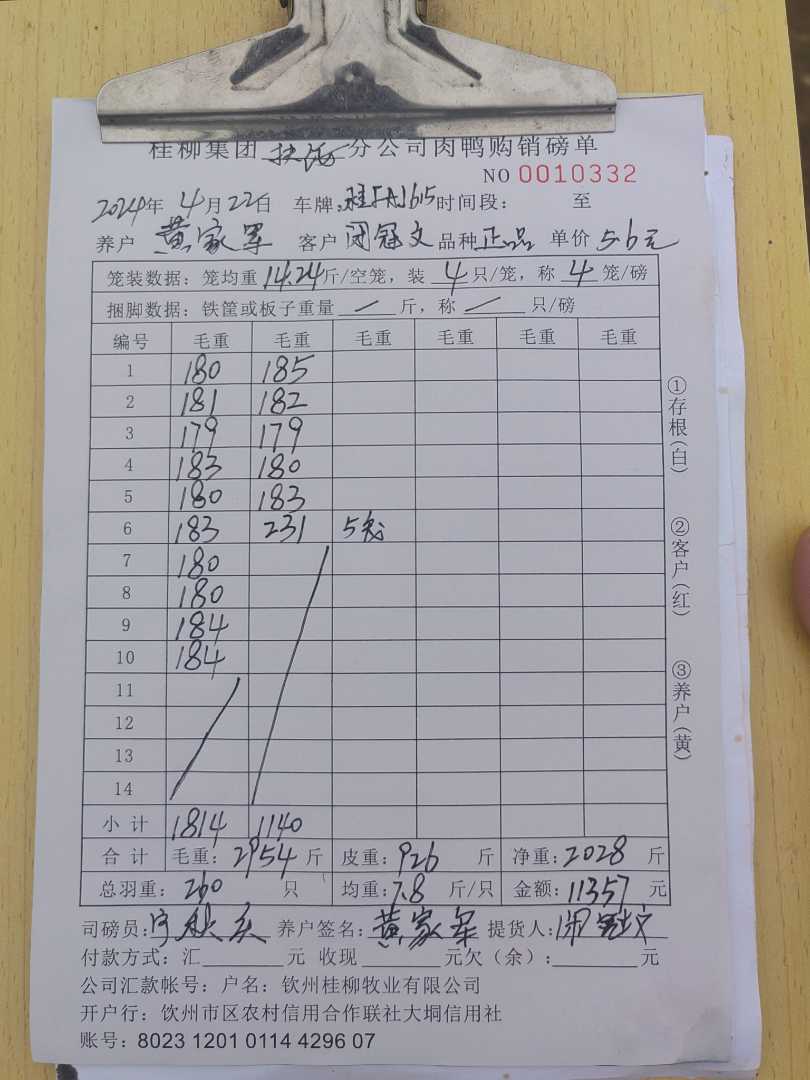 桂柳集团 扶绥 分公司肉鸭购销磅单
NO 0010332
2024年 4月22日 车牌: 1615 时间段: 至
养户 黄家军 客户 闭冠文 品种 正品 单价 5.6元
笼装数据: 笼均重 14.24 斤/空笼, 装 4 只/笼, 称 4 笼/磅
捆脚数据: 铁筐或板子重量 / 斤, 称 / 只/磅
编号 毛重 毛重 毛重 毛重 毛重 毛重
1 180 185
2 181 182
3 179 179
4 183 180
5 180 183
6 183 231 5
7 180
8 180
9 184
10 184
11
12
13
14
小计 1814 1140
合计 毛重: 2954 斤 皮重: 926 斤 净重: 2028 斤
总羽重: 260 只 均重: 7.8 斤/只 金额: 11357 元
司磅员: 养户签名: 黄家军 提货人: 闭冠文
付款方式: 汇 元 收现 元欠(余): 元
公司汇款帐号: 户名: 钦州桂柳牧业有限公司
开户行: 钦州市区农村信用合作联社大垌信用社
账号: 8023 1201 0114 4296 07
①存根(白)
②客户(红)
③养户(黄)